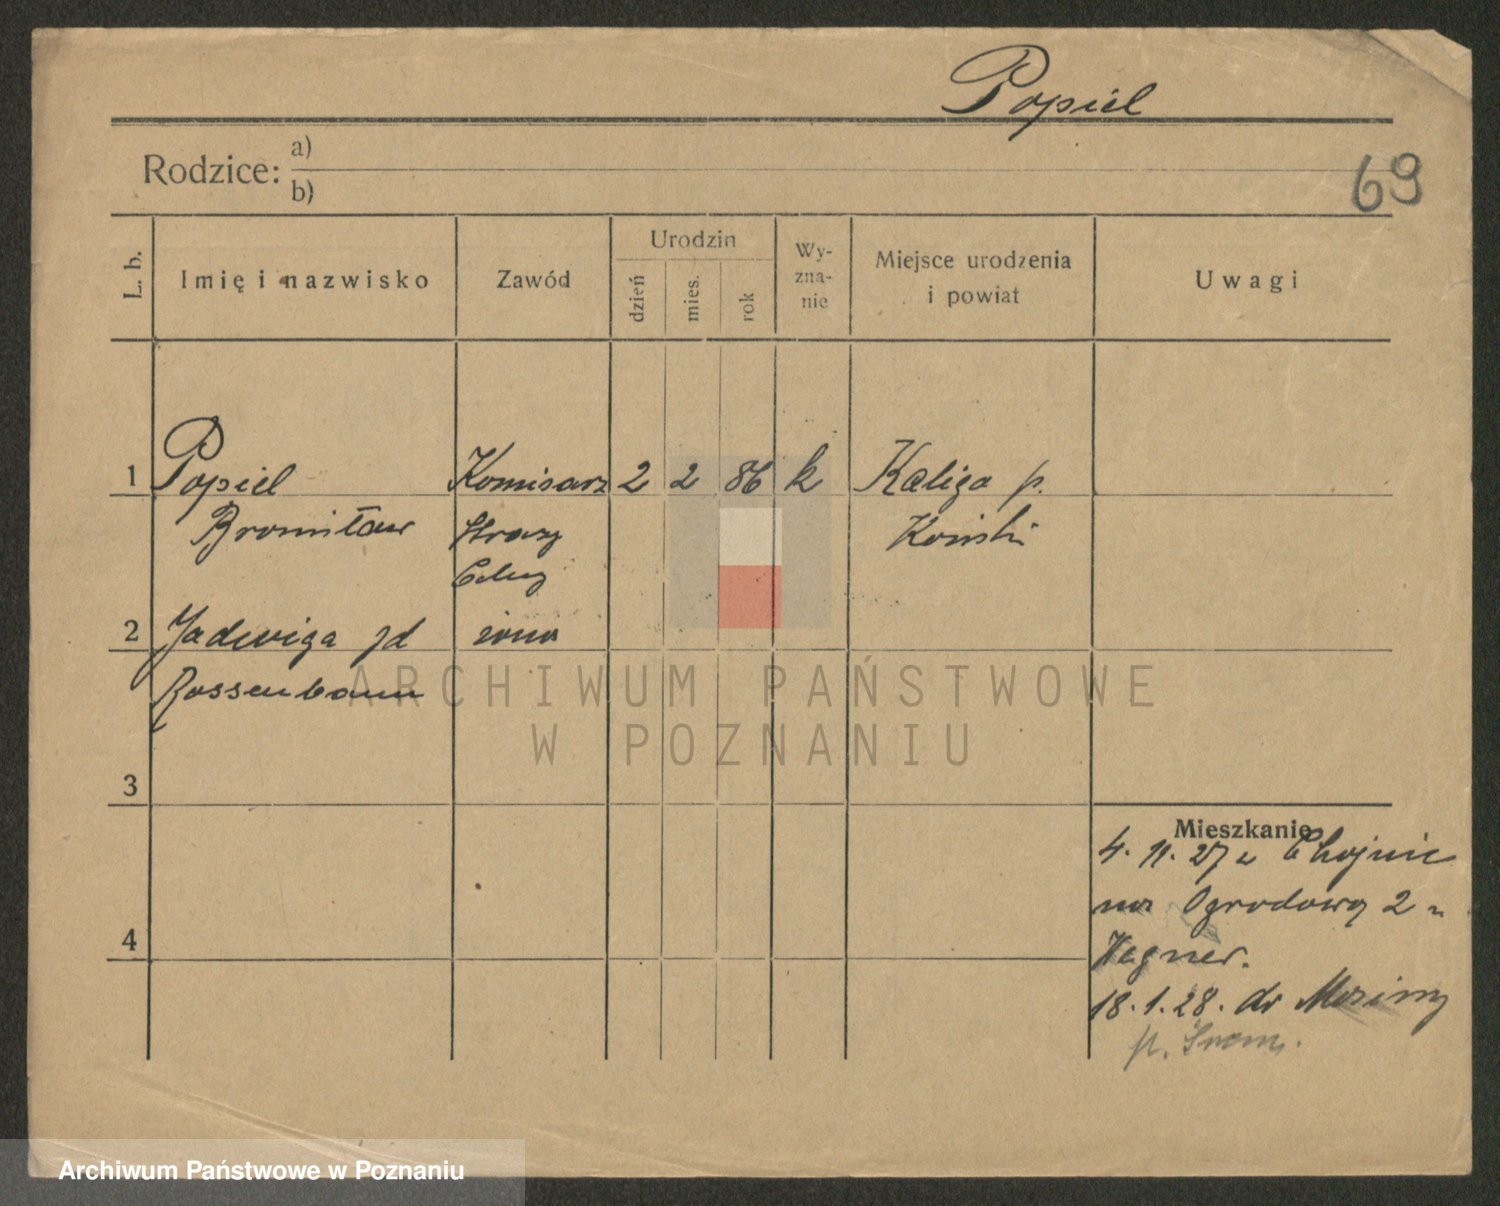 Popiel
69
Rodzice: a)
b)
L. b.
Imię i nazwisko
Zawód
Urodzin
dzień
mies.
rok
Wy-
zna-
nie
Miejsce urodzenia
i powiat
Uwagi
1 Popiel Komisarz 2 2 86 k Kaliga p.
Bronisław Straży Koński
Celnej
2 Jadwiga żona
3
4
Mieszkanie
4. 11. 27 z Chojnic
na Ogrodową 2
Wagner.
18. 1. 28. do
p.
ARCHIWUM PAŃSTWOWE
W POZNANIU
Archiwum Państwowe w Poznaniu